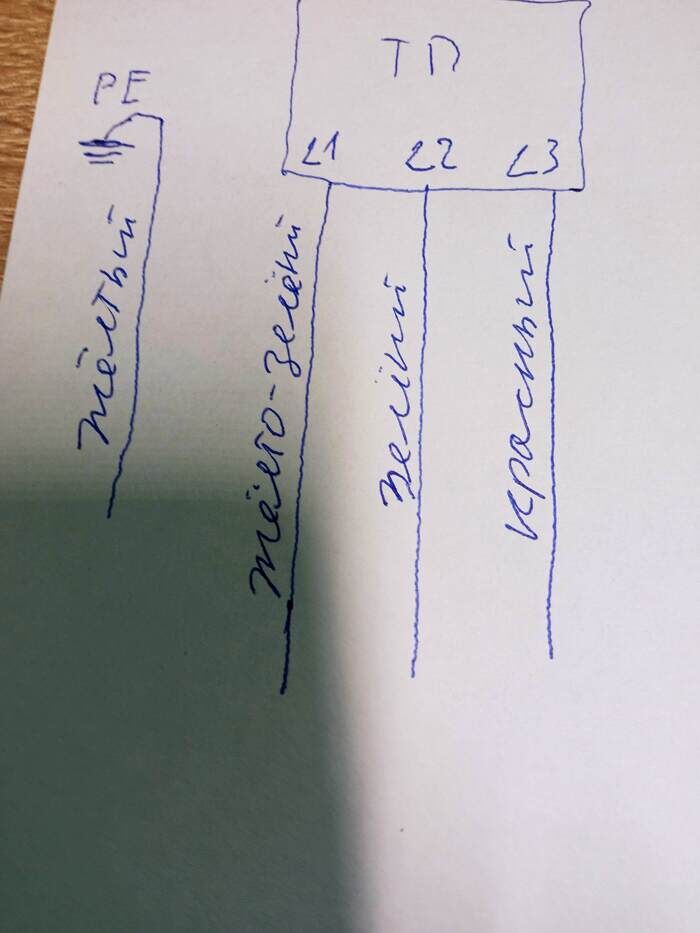 ТП
PE
L1 L2 L3
Жёлтый
Жёлто-зелёный
Зелёный
Красный